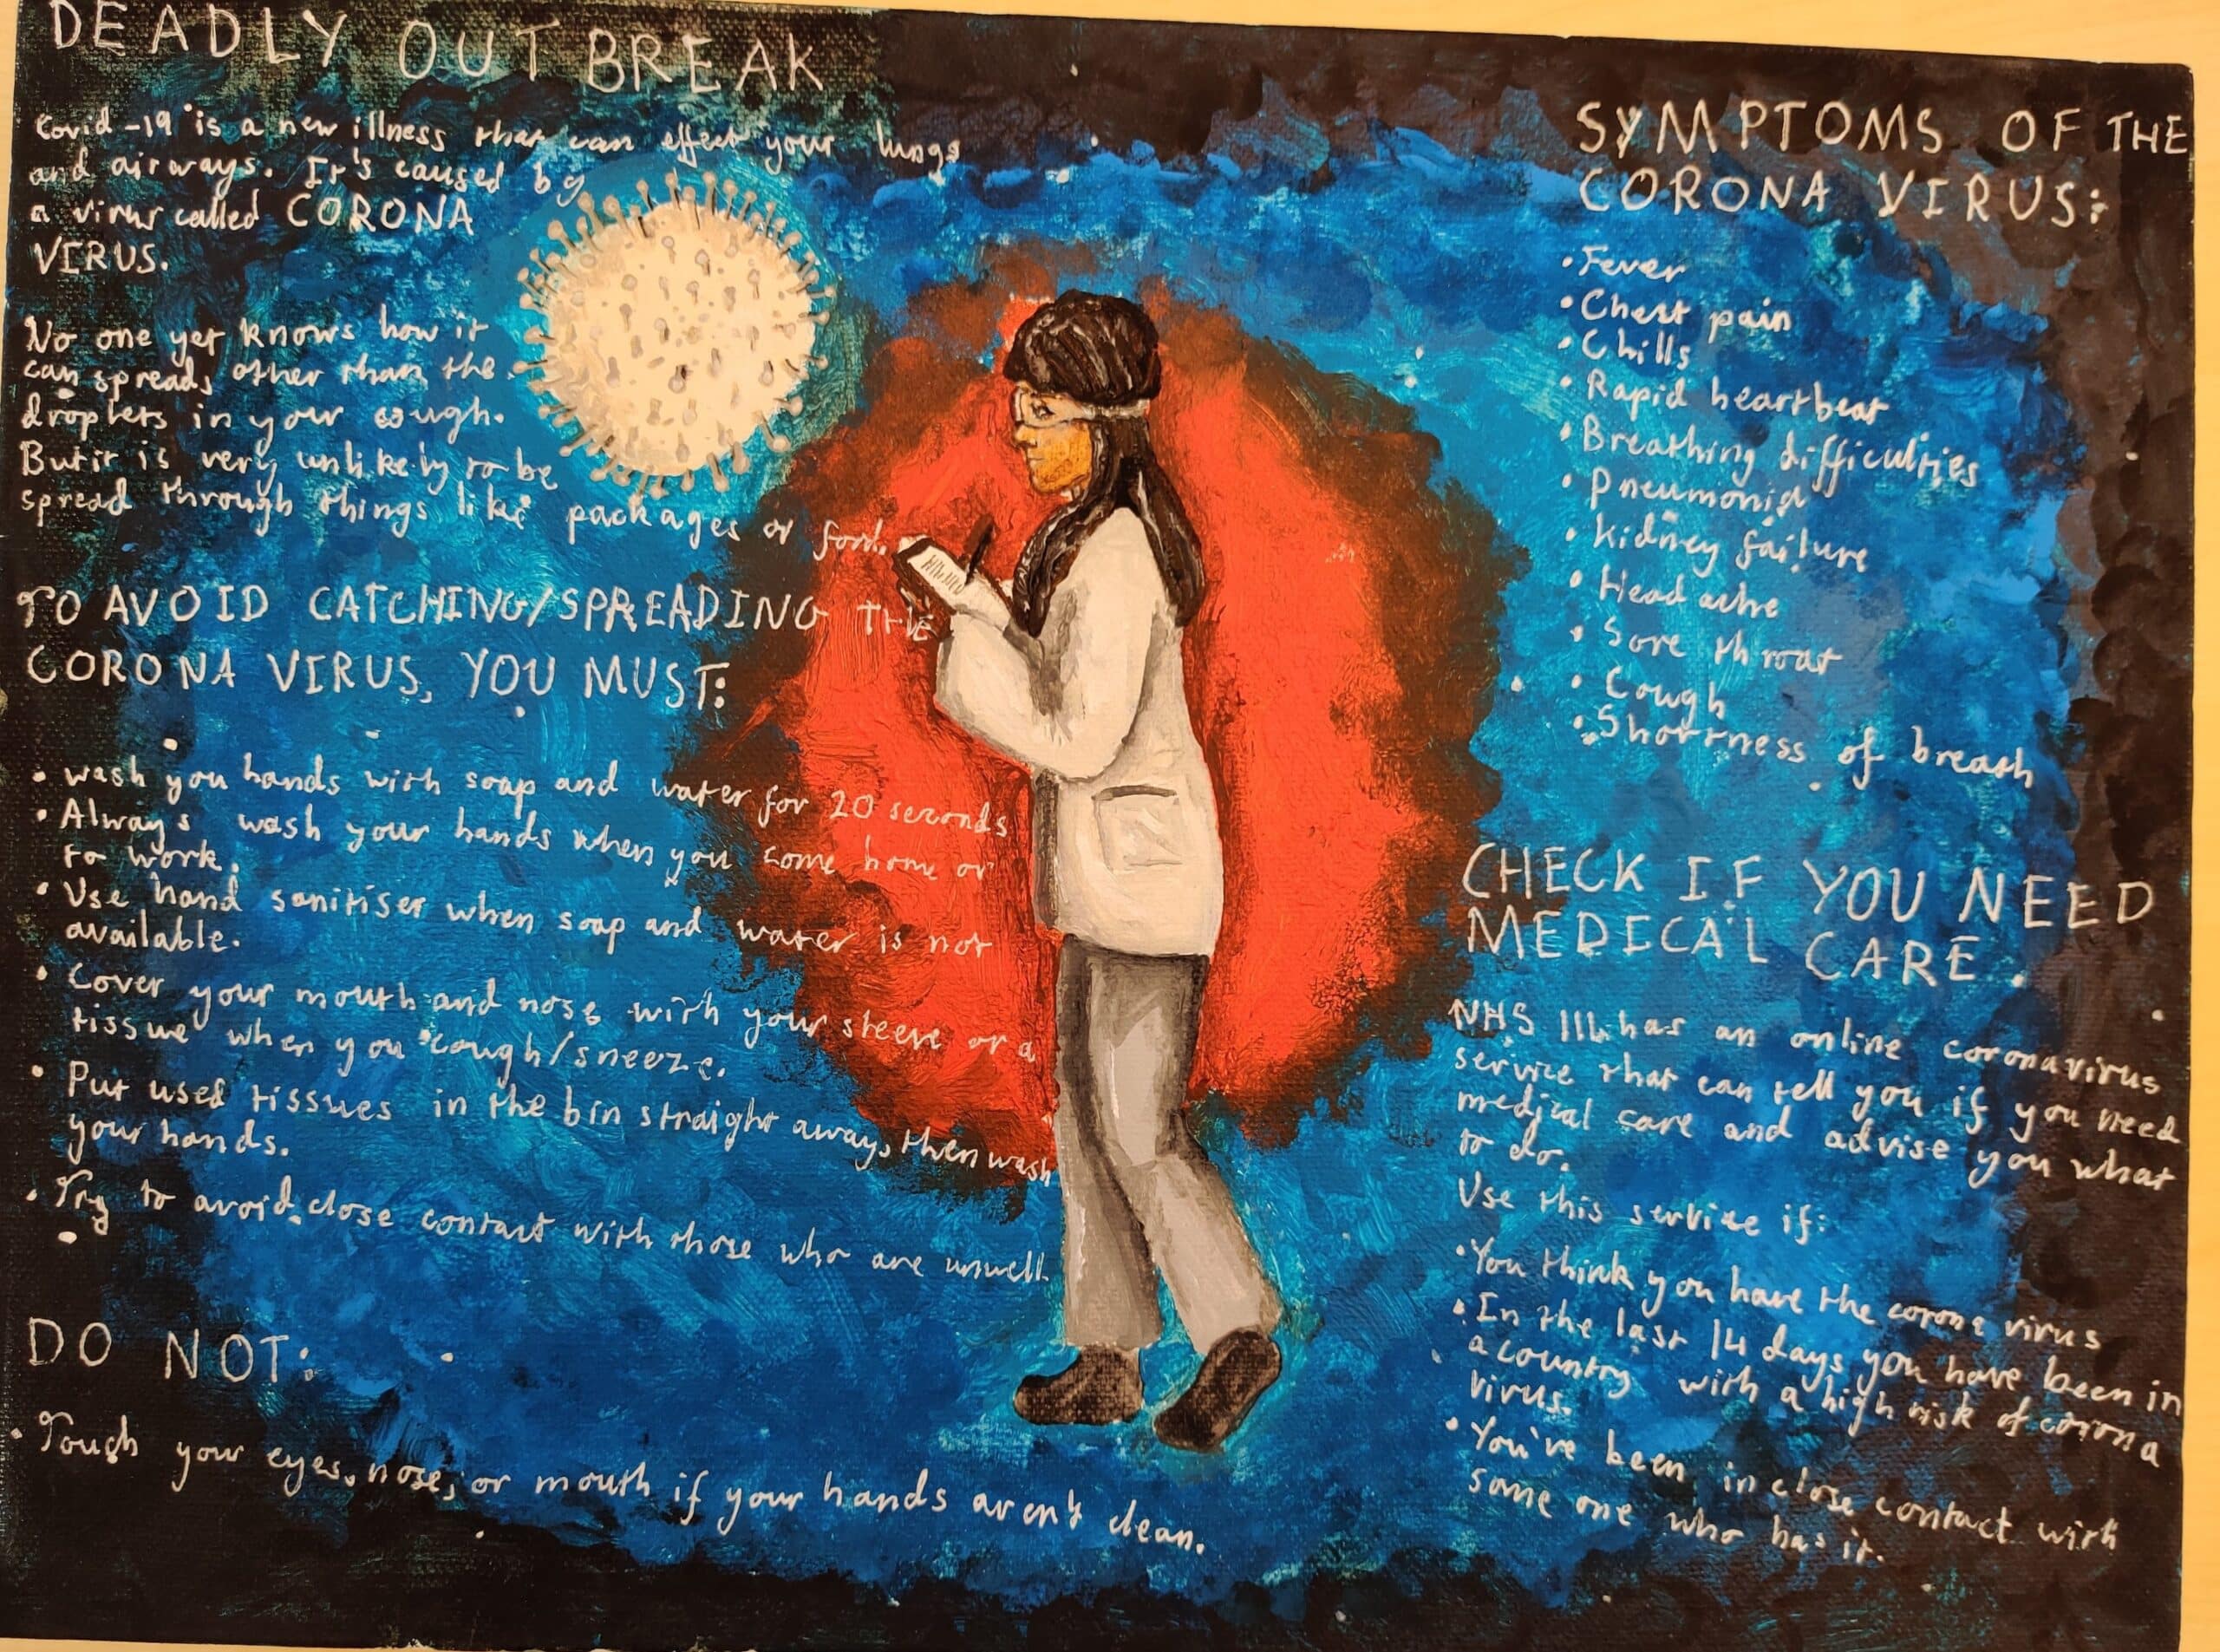 DEADLY OUT BREAK
Covid-19 is a new illness that can effect your lungs
and airways. It's caused by
a virus called CORONA
VIRUS.
No one yet knows how it
can spreads other than the
droplets in your cough.
But it is very unlikely to be
spread through things like packages or food.
TO AVOID CATCHING/SPREADING THE
CORONA VIRUS, YOU MUST:
• wash you hands with soap and water for 20 seconds
• Always wash your hands when you come home or
to work.
• Use hand sanitiser when soap and water is not
available.
• Cover your mouth and nose with your sleeve or a
tissue when you cough/sneeze.
• Put used tissues in the bin straight away, then wash
your hands.
• Try to avoid close contact with those who are unwell.
DO NOT:
• Touch your eyes, nose, or mouth if your hands aren't clean.
SYMPTOMS OF THE
CORONA VIRUS:
• Fever
• Chest pain
• Chills
• Rapid heartbeat
• Breathing difficulties
• Pneumonia
• Kidney failure
• Head ache
• Sore throat
• Cough
• Shortness of breath
CHECK IF YOU NEED
MEDICAL CARE.
NHS 111 has an online coronavirus
service that can tell you if you need
medical care and advise you what
to do.
Use this service if:
• You think you have the corona virus
• In the last 14 days you have been in
a country with a high risk of corona
virus.
• You've been in close contact with
some one who has it.